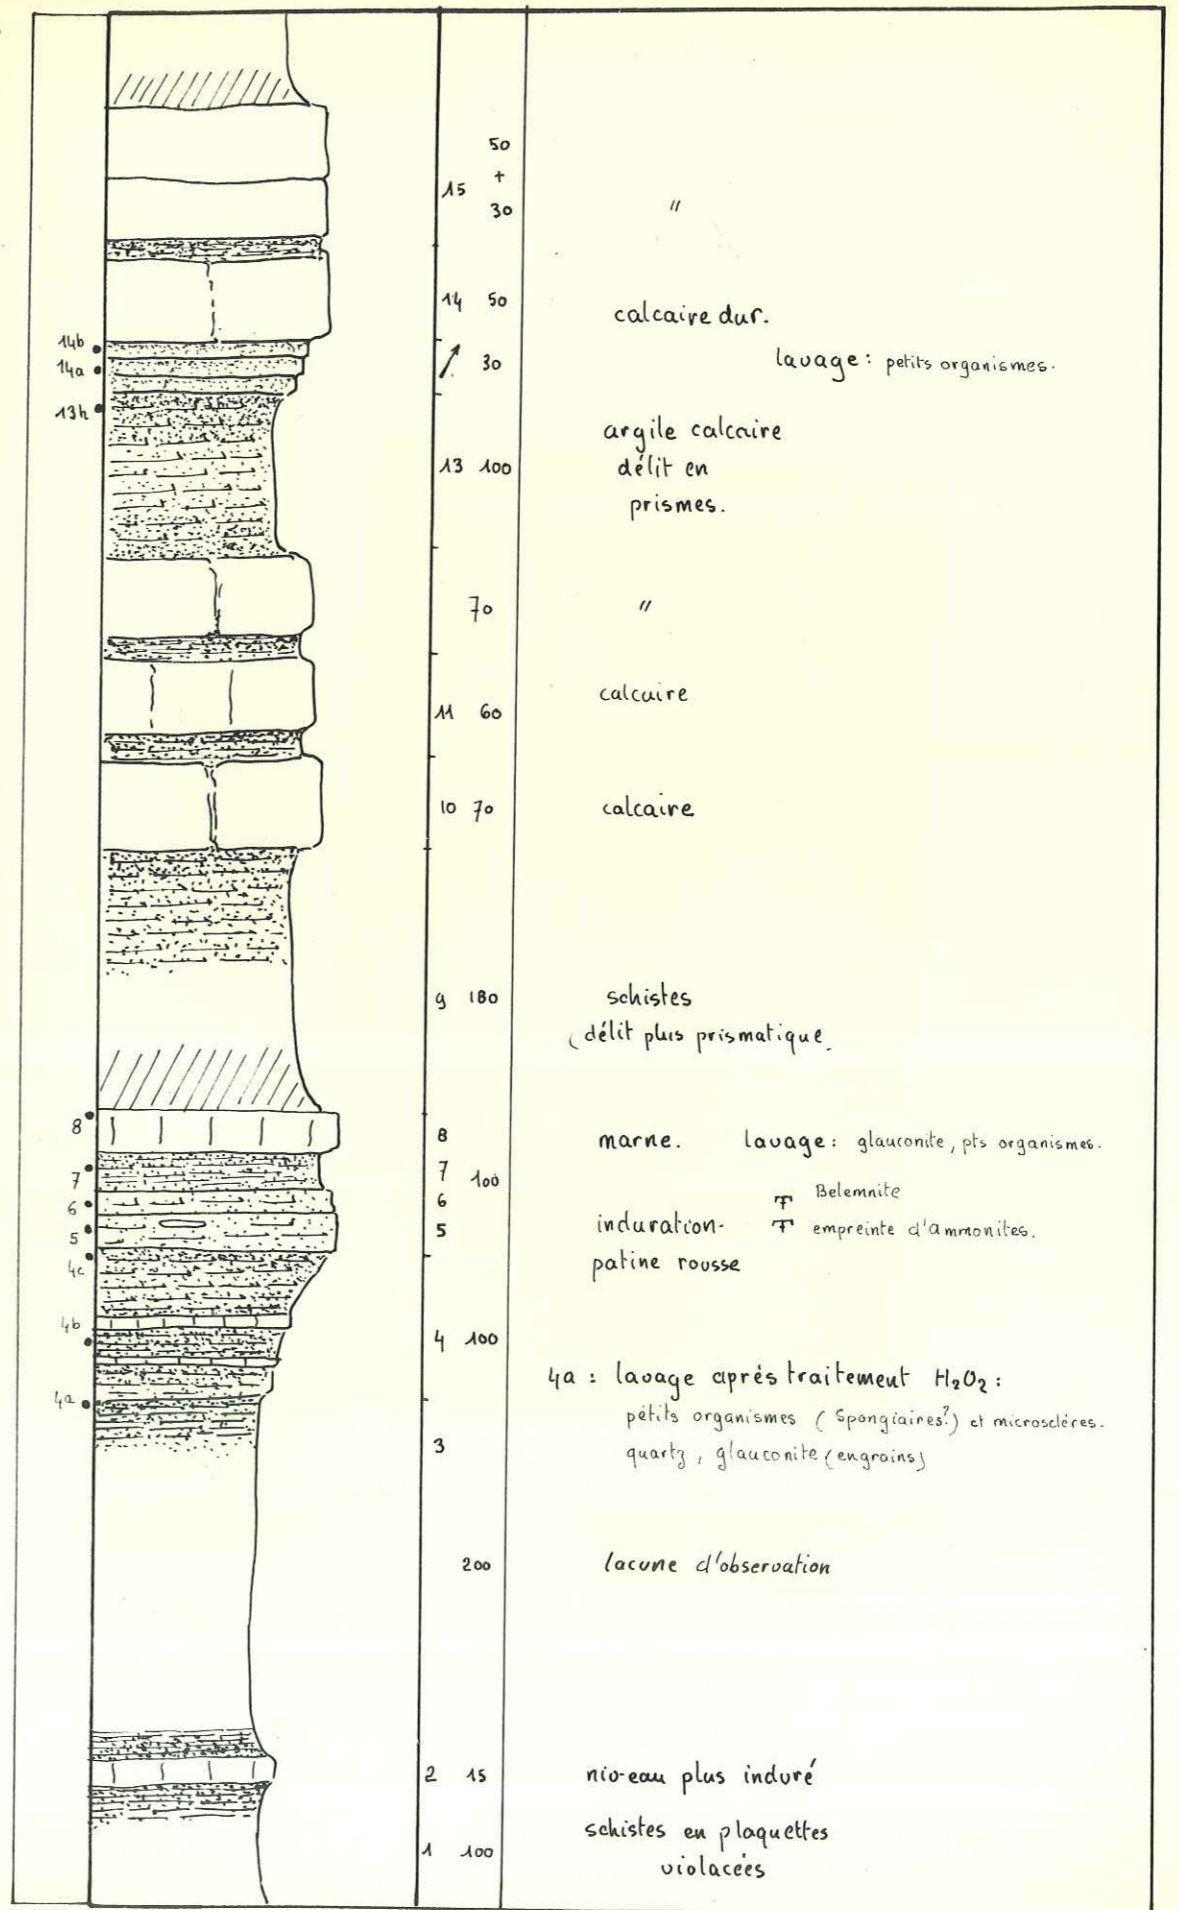 50
+
15
30
"
14 50
calcaire dur.
14b
14a
30
lavage : petits organismes.
13h
argile calcaire
13 100
délit en
prismes.
70
"
11 60
calcaire
10 70
calcaire
9 180
schistes
(délit plus prismatique.
8
8
marne. lavage : glauconite, pts organismes.
7
7
100
6
6
Belemnite
5
5
induration-
empreinte d'ammonites.
4c
patine rousse
4b
4 100
4a
4a : lavage après traitement H₂O₂ :
pétits organismes (Spongiaires?) et microsclères.
3
quartz, glauconite (engrains)
200
lacune d'observation
2 15
niveau plus induré
schistes en plaquettes
1 100
violacées